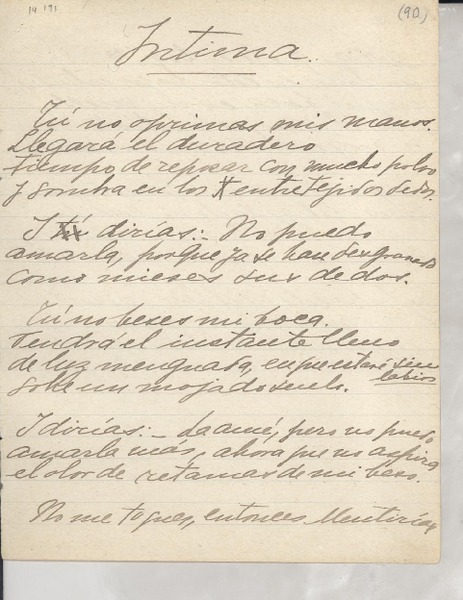 14 191
(90)
Intima.
Tú no oprimas mis manos.
Llegará el duradero
tiempo de reposar con mucho polvo
y sombra en los entretejidos dedos.
I dirías:- No puedo
amarla, porque ya se han desgranado
como mieses sus dedos.
Tú no beses mi boca.
Vendrá el instante lleno
de luz menguada, en que estaré sin
labios
sobre un mojado suelo.
I dirías:- La amé, pero no puedo
amarla más, ahora que no aspira
el olor de retamas de mi beso.
No me toques, entonces. Mentirías